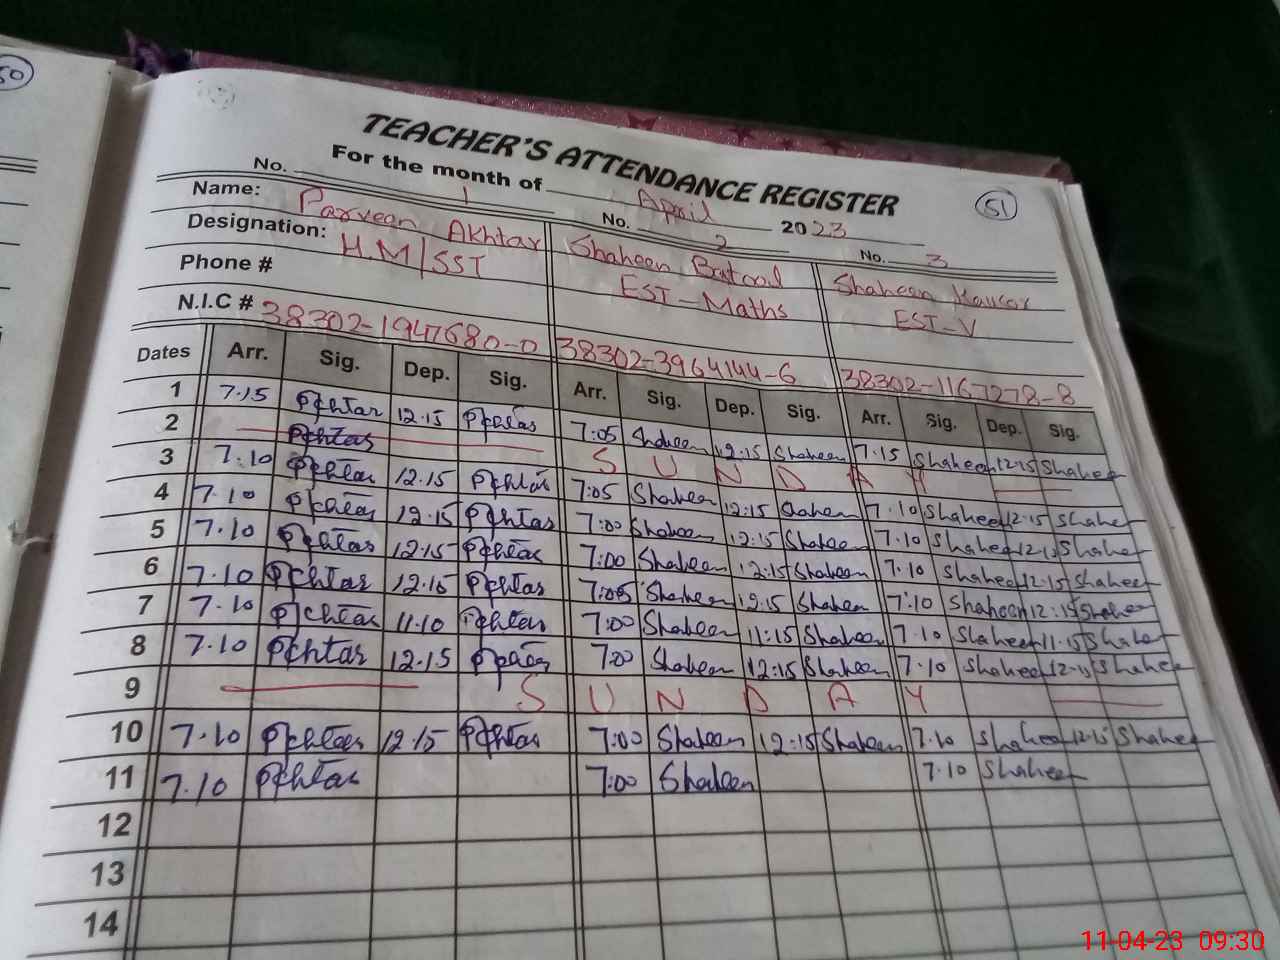 50
TEACHER'S ATTENDANCE REGISTER
51
For the month of April 2023
No. 1 No. 2 No. 3
Name: Parveen Akhtar Shaheen Batool Shaheen Kausar
Designation: H.M/SST EST-Maths EST-V
Phone #
N.I.C # 38302-1947680-0 38302-3964144-6 38302-1167278-8
Dates Arr. Sig. Dep. Sig. Arr. Sig. Dep. Sig. Arr. Sig. Dep. Sig.
1 7.15 Pkhtar 12.15 7:05 Shaheen 12:15 Shaheen 7.15 Shaheen 12.15 Shaheen
2 Pkhtar S U N D A Y
3 7.10 Pkhtar 12.15 Pkhtar 7:05 Shaheen 12:15 Shaheen 7.10 Shaheen 12.15 Shaheen
4 7.10 Pkhtar 12.15 Pkhtar 7:00 Shaheen 12:15 Shaheen 7.10 Shaheen Shaheen
5 7.10 Pkhtar 12.15 Pkhtar 7:00 Shaheen 12:15 Shaheen 7.10 Shaheen 12.15 Shaheen
6 7.10 Pkhtar 12.15 Pkhtar 7:05 Shaheen 12:15 Shaheen 7.10 Shaheen 12.15 Shaheen
7 7.10 Pkhtar 11.10 Pkhtar 7:00 Shaheen 11:15 Shaheen 7.10 Shaheen 11.15 Shaheen
8 7.10 Pkhtar 12.15 7:00 Shaheen 12:15 Shaheen 7.10 Shaheen Shaheen
9 S U N D A Y
10 7.10 Pkhtar 12.15 Pkhtar 7:00 Shaheen 12:15 Shaheen 7.10 Shaheen 12.15 Shaheen
11 7.10 Pkhtar 7:00 Shaheen 7.10 Shaheen
12
13
14
11-04-23 09:30